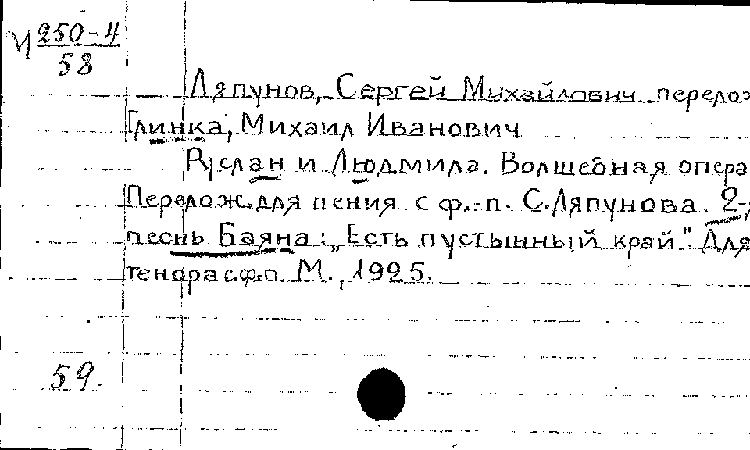 И 250-4
58
Ляпунов, Сергей Михайлович перелож
Глинка, Михаил Иванович
Руслан и Людмила. Волшебная опера
Перелож. для пения с ф.-п. С. Ляпунова. 2-я
песнь Баяна: „Есть пустынный край". Для
тенора с ф.п. М., 1925.
59.